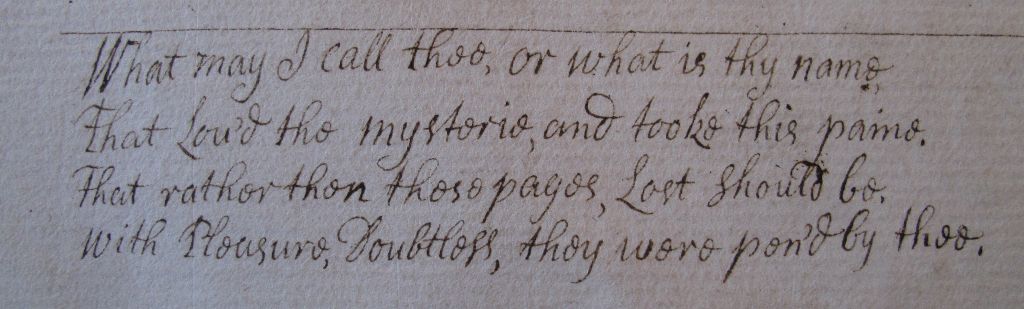 What may I call thee, or what is thy name,
That Lou'd the mysterie, and tooke this paine.
That rather then these pages, Lost should be.
With Pleasure, Doubtless, they were pen'd by thee.